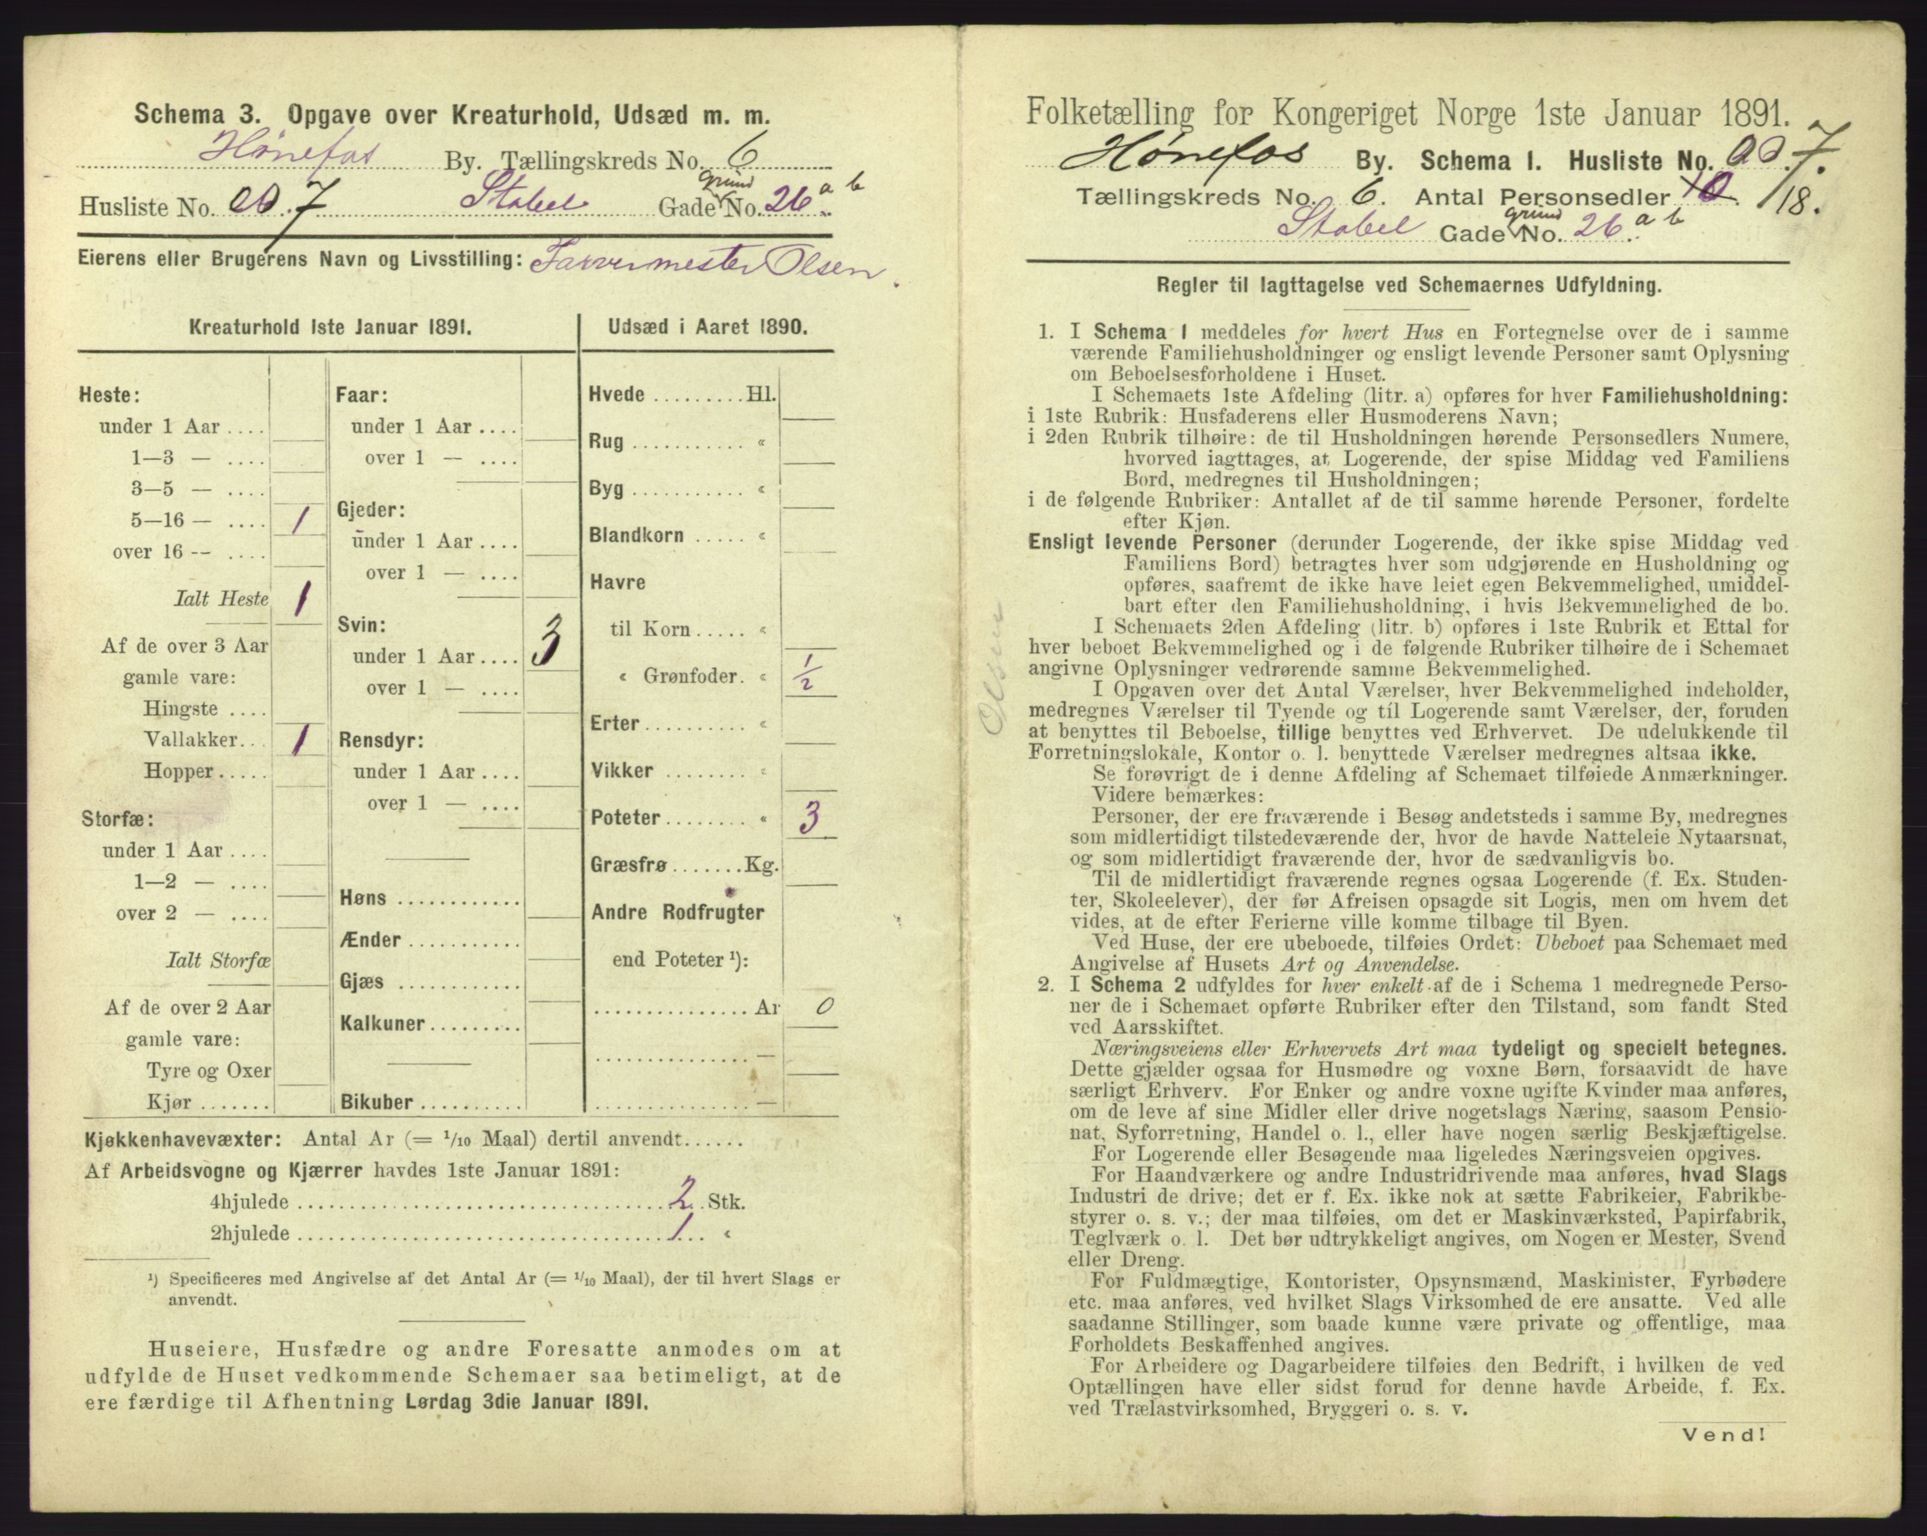 Schema 3. Opgave over Kreaturhold, Udsæd m. m.
Hønefos By. Tællingskreds No. 6
Husliste No. 7 Stabel Gade grund No. 26 a b
Eierens eller Brugerens Navn og Livsstilling: Farvermester Olsen.
Kreaturhold 1ste Januar 1891.
Heste:
under 1 Aar ....
1—3 — ....
3—5 — ....
5—16 — .... 1
over 16 -- ....
Ialt Heste 1
Af de over 3 Aar
gamle vare:
Hingste ....
Vallakker... 1
Hopper.....
Storfæ:
under 1 Aar ....
1—2 — ....
over 2 — ....
Ialt Storfæ
Af de over 2 Aar
gamle vare:
Tyre og Oxer
Kjør .......
Faar:
under 1 Aar ....
over 1 — ....
Gjeder:
under 1 Aar ....
over 1 — ....
Svin:
under 1 Aar .... 3
over 1 — ....
Rensdyr:
under 1 Aar ....
over 1 — ....
Høns ............
Ænder ...........
Gjæs ............
Kalkuner.........
Bikuber..........
Udsæd i Aaret 1890.
Hvede .........Hl.
Rug ........... «
Byg ........... «
Blandkorn ..... «
Havre
til Korn ..... «
« Grønfoder. « 1/2
Erter .......... «
Vikker ........ «
Poteter ........ « 3
Græsfrø .......Kg.
Andre Rodfrugter
end Poteter ¹):
............... Ar 0
............... —
............... —
Kjøkkenhavevæxter: Antal Ar (= 1/10 Maal) dertil anvendt......
Af Arbeidsvogne og Kjærrer havdes 1ste Januar 1891:
4hjulede .................................... 2 Stk.
2hjulede .................................... 1 «
¹) Specificeres med Angivelse af det Antal Ar (= 1/10 Maal), der til hvert Slags er
anvendt.
Huseiere, Husfædre og andre Foresatte anmodes om at
udfylde de Huset vedkommende Schemaer saa betimeligt, at de
ere færdige til Afhentning Lørdag 3die Januar 1891.
Olsen
Folketælling for Kongeriget Norge 1ste Januar 1891.
Hønefos By. Schema 1. Husliste No. 7.
Tællingskreds No. 6. Antal Personsedler 10 18.
Stabel Gade grund No. 26 a b
Regler til Iagttagelse ved Schemaernes Udfyldning.
1. I Schema 1 meddeles for hvert Hus en Fortegnelse over de i samme
værende Familiehusholdninger og ensligt levende Personer samt Oplysning
om Beboelsesforholdene i Huset.
I Schemaets 1ste Afdeling (litr. a) opføres for hver Familiehusholdning:
i 1ste Rubrik: Husfaderens eller Husmoderens Navn;
i 2den Rubrik tilhøire: de til Husholdningen hørende Personsedlers Numere,
hvorved iagttages, at Logerende, der spise Middag ved Familiens
Bord, medregnes til Husholdningen;
i de følgende Rubriker: Antallet af de til samme hørende Personer, fordelte
efter Kjøn.
Ensligt levende Personer (derunder Logerende, der ikke spise Middag ved
Familiens Bord) betragtes hver som udgjørende en Husholdning og
opføres, saafremt de ikke have leiet egen Bekvemmelighed, umiddel-
bart efter den Familiehusholdning, i hvis Bekvemmelighed de bo.
I Schemaets 2den Afdeling (litr. b) opføres i 1ste Rubrik et Ettal for
hver beboet Bekvemmelighed og i de følgende Rubriker tilhøire de i Schemaet
angivne Oplysninger vedrørende samme Bekvemmelighed.
I Opgaven over det Antal Værelser, hver Bekvemmelighed indeholder,
medregnes Værelser til Tyende og til Logerende samt Værelser, der, foruden
at benyttes til Beboelse, tillige benyttes ved Erhvervet. De udelukkende til
Forretningslokale, Kontor o. l. benyttede Værelser medregnes altsaa ikke.
Se forøvrigt de i denne Afdeling af Schemaet tilføiede Anmærkninger.
Videre bemærkes:
Personer, der ere fraværende i Besøg andetsteds i samme By, medregnes
som midlertidigt tilstedeværende der, hvor de havde Natteleie Nytaarsnat,
og som midlertidigt fraværende der, hvor de sædvanligvis bo.
Til de midlertidigt fraværende regnes ogsaa Logerende (f. Ex. Studen-
ter, Skoleelever), der før Afreisen opsagde sit Logis, men om hvem det
vides, at de efter Ferierne ville komme tilbage til Byen.
Ved Huse, der ere ubeboede, tilføies Ordet: Ubeboet paa Schemaet med
Angivelse af Husets Art og Anvendelse.
2. I Schema 2 udfyldes for hver enkelt af de i Schema 1 medregnede Perso-
ner de i Schemaet opførte Rubriker efter den Tilstand, som fandt Sted
ved Aarsskiftet.
Næringsveiens eller Erhvervets Art maa tydeligt og specielt betegnes.
Dette gjælder ogsaa for Husmødre og voxne Børn, forsaavidt de have
særligt Erhverv. For Enker og andre voxne ugifte Kvinder maa anføres,
om de leve af sine Midler eller drive nogetslags Næring, saasom Pensio-
nat, Syforretning, Handel o. l., eller have nogen særlig Beskjæftigelse.
For Logerende eller Besøgende maa ligeledes Næringsveien opgives.
For Haandværkere og andre Industridrivende maa anføres, hvad Slags
Industri de drive; det er f. Ex. ikke nok at sætte Fabrikeier, Fabrikbe-
styrer o. s. v.; der maa tilføies, om det er Maskinværksted, Papirfabrik,
Teglværk o. l. Det bør udtrykkeligt angives, om Nogen er Mester, Svend
eller Dreng.
For Fuldmægtige, Kontorister, Opsynsmænd, Maskinister, Fyrbødere
etc. maa anføres, ved hvilket Slags Virksomhed de ere ansatte. Ved alle
saadanne Stillinger, som baade kunne være private og offentlige, maa
Forholdets Beskaffenhed angives.
For Arbeidere og Dagarbeidere tilføies den Bedrift, i hvilken de ved
Optællingen have eller sidst forud for denne havde Arbeide, f. Ex.
ved Trælastvirksomhed, Bryggeri o. s. v.
Vend!